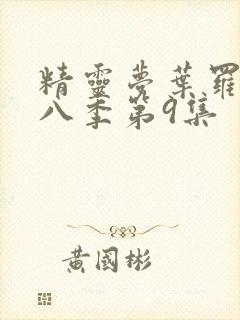 精靈夢葉羅
八季第9集
黃國彬